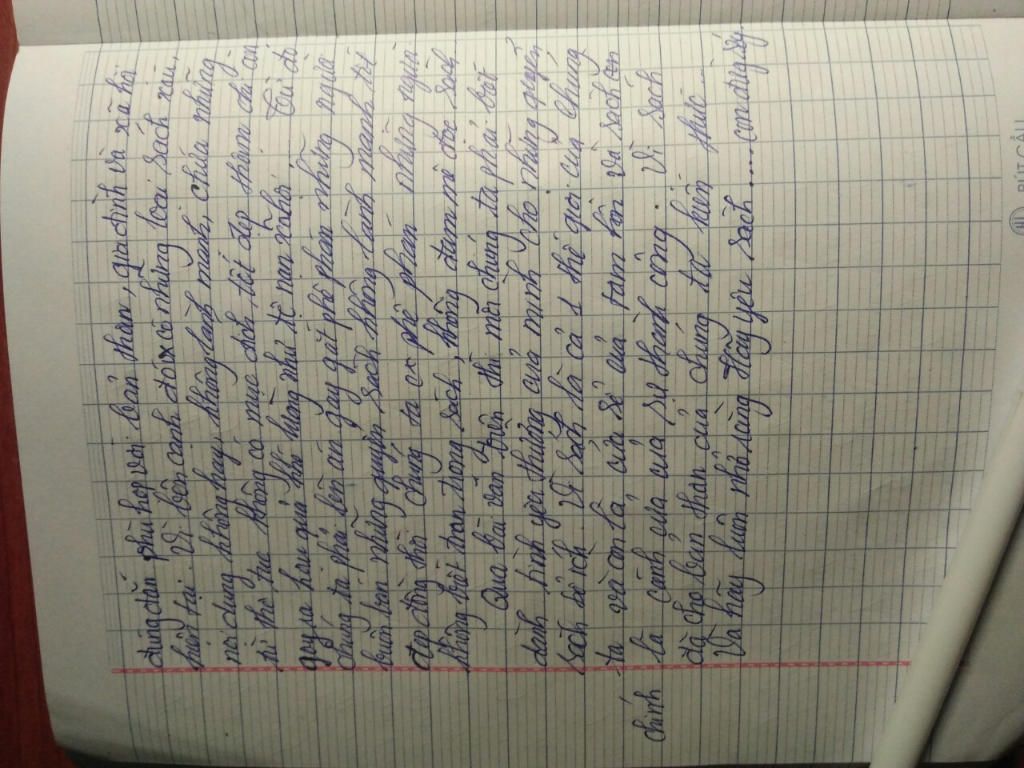 đúng đắn phù hợp với bản thân, gia đình và xã hội
hiện tại. Vì bên cạnh đó có những loại sách xấu,
nội dung không hay, không lành mạnh, chứa những
có mục đích tốt đẹp thậm chí còn
gây ra hậu quả khó lường như tệ nạn xã hội. Từ đó
chúng ta phải lên án gay gắt phê phán những người
buôn bán những quyển sách không lành mạnh tốt
đẹp đồng thời chúng ta cần phê phán những người
không biết trân trọng sách, không đam mê đọc sách.
Qua bài văn trên thì mỗi chúng ta phải biết
dành tình yêu thương của mình cho những quyển
sách bổ ích. Vì sách là cả 1 thế giới của chúng
ta và còn là cửa sổ của tâm hồn và sách còn
là cánh cửa của sự thành công. Vì sách
chính
đã cho bản thân của chúng ta kiến thức
Và hãy luôn nhớ rằng Hãy yêu sách....
BÚT CẦU